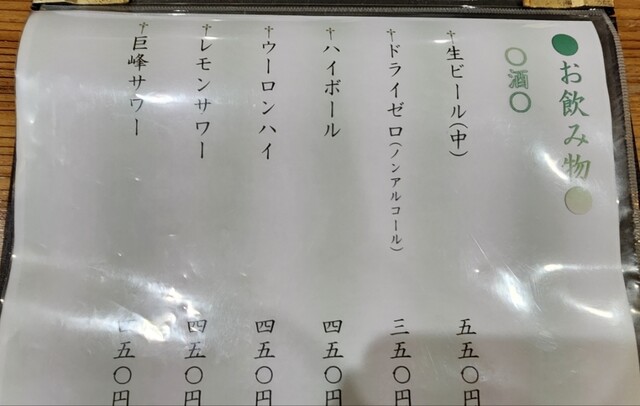 ●お飲み物●
○酒○
†生ビール(中) 五五〇円
†ドライゼロ(ノンアルコール) 三五〇円
†ハイボール 四五〇円
†ウーロンハイ 四五〇円
†レモンサワー 四五〇円
†巨峰サワー 四五〇円